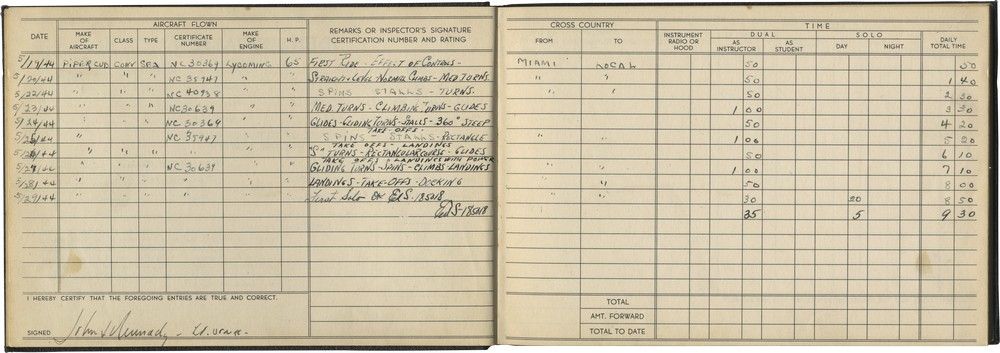 AIRCRAFT FLOWN
DATE MAKE OF AIRCRAFT CLASS TYPE CERTIFICATE NUMBER MAKE OF ENGINE H. P. REMARKS OR INSPECTOR'S SIGNATURE CERTIFICATION NUMBER AND RATING
5/19/44 PIPER CUB CONV SEA NC 30369 LYCOMING 65 FIRST RIDE - EFFECT OF CONTROLS -
5/20/44 " " " NC 35947 " " STRAIGHT & LEVEL NORMAL CLIMBS - MED TURNS
5/22/44 " " " NC 40938 " " SPINS STALLS - TURNS.
5/23/44 " " " NC 30639 " " MED. TURNS - CLIMBING TURNS - GLIDES
5/24/44 " " " NC 30369 " " GLIDES - GLIDING TURNS - STALLS - 360° STEEP
TAKE-OFFS -
5/25/44 " " " NC 35947 " " SPINS - STALLS - RECTANGLE
TAKE OFFS - LANDINGS
5/26/44 " " " " " "S" TURNS - RECTANGULAR COURSE - GLIDES
TAKE OFFS - LANDINGS WITH POWER
" " " NC 30639 " " GLIDING TURNS - SPINS - CLIMBS LANDINGS
5/28/44 " " " " " " LANDINGS - TAKE-OFFS - DOCKING
5/29/44 " " " " " " First Solo OK EdS - 185218
EdS - 185218
I HEREBY CERTIFY THAT THE FOREGOING ENTRIES ARE TRUE AND CORRECT.
SIGNED John Kennedy - Lt. USNR -
CROSS COUNTRY TIME
FROM TO INSTRUMENT RADIO OR HOOD DUAL SOLO DAILY TOTAL TIME
AS INSTRUCTOR AS STUDENT DAY NIGHT
MIAMI LOCAL 50 50
" " 50 1 40
" 50 2 30
1 00 3 30
50 4 20
" " 1 00 5 20
50 6 10
" " 1 00 7 10
" 50 8 00
" 30 20 8 50
35 5 9 30
TOTAL
AMT. FORWARD
TOTAL TO DATE